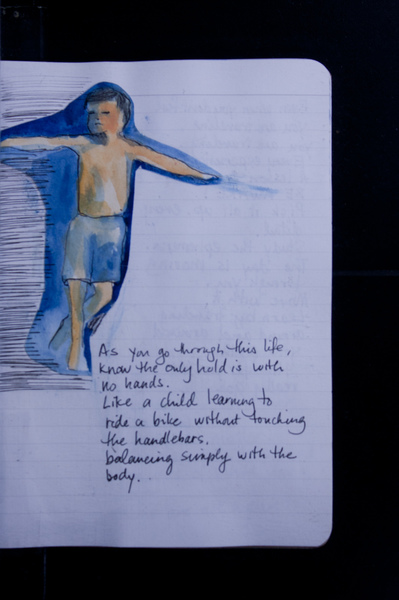 As you go through this life,
know the only hold is with
no hands.
Like a child learning to
ride a bike without touching
the handlebars.
balancing simply with the
body.